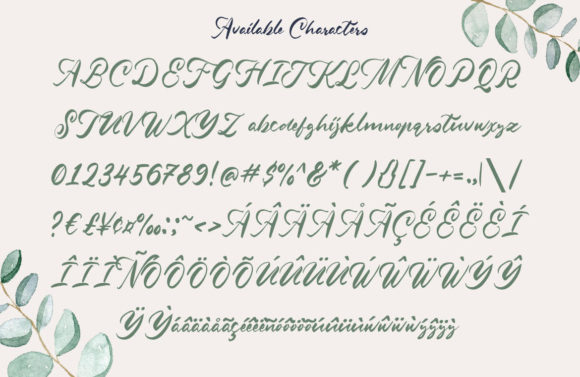 Available Characters
ABCDEFGHIJKLMNOPQR
STUVWXYZ abcdefghijklmnopqrstuvwxyz
0123456789!@#$%^&*(){}[]-+=.,|\/
?€£¥¢¤‰:;~<>ÁÂÄÀÅÃÇÉÊËÈÍ
ÎÏÌÑÓÔÖÒÕÚÛÜÙẂŴẄẀÝŶ
ŸỲáâäàåãçéêëèñóôöòõúûüùíẃŵẅẁýŷÿỳ